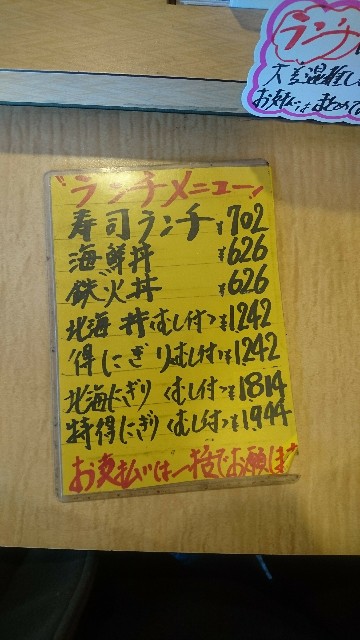 ランチ
大変混雑し
お支払いはまとめて
〝ランチメニュー〟
寿司ランチ ¥702
海鮮丼 ¥626
鉄火丼 ¥626
北海丼〈むし付〉¥1242
得にぎり〈むし付〉¥1242
北海にぎり〈むし付〉¥1814
特得にぎり〈むし付〉¥1944
お支払いは一括でお願います